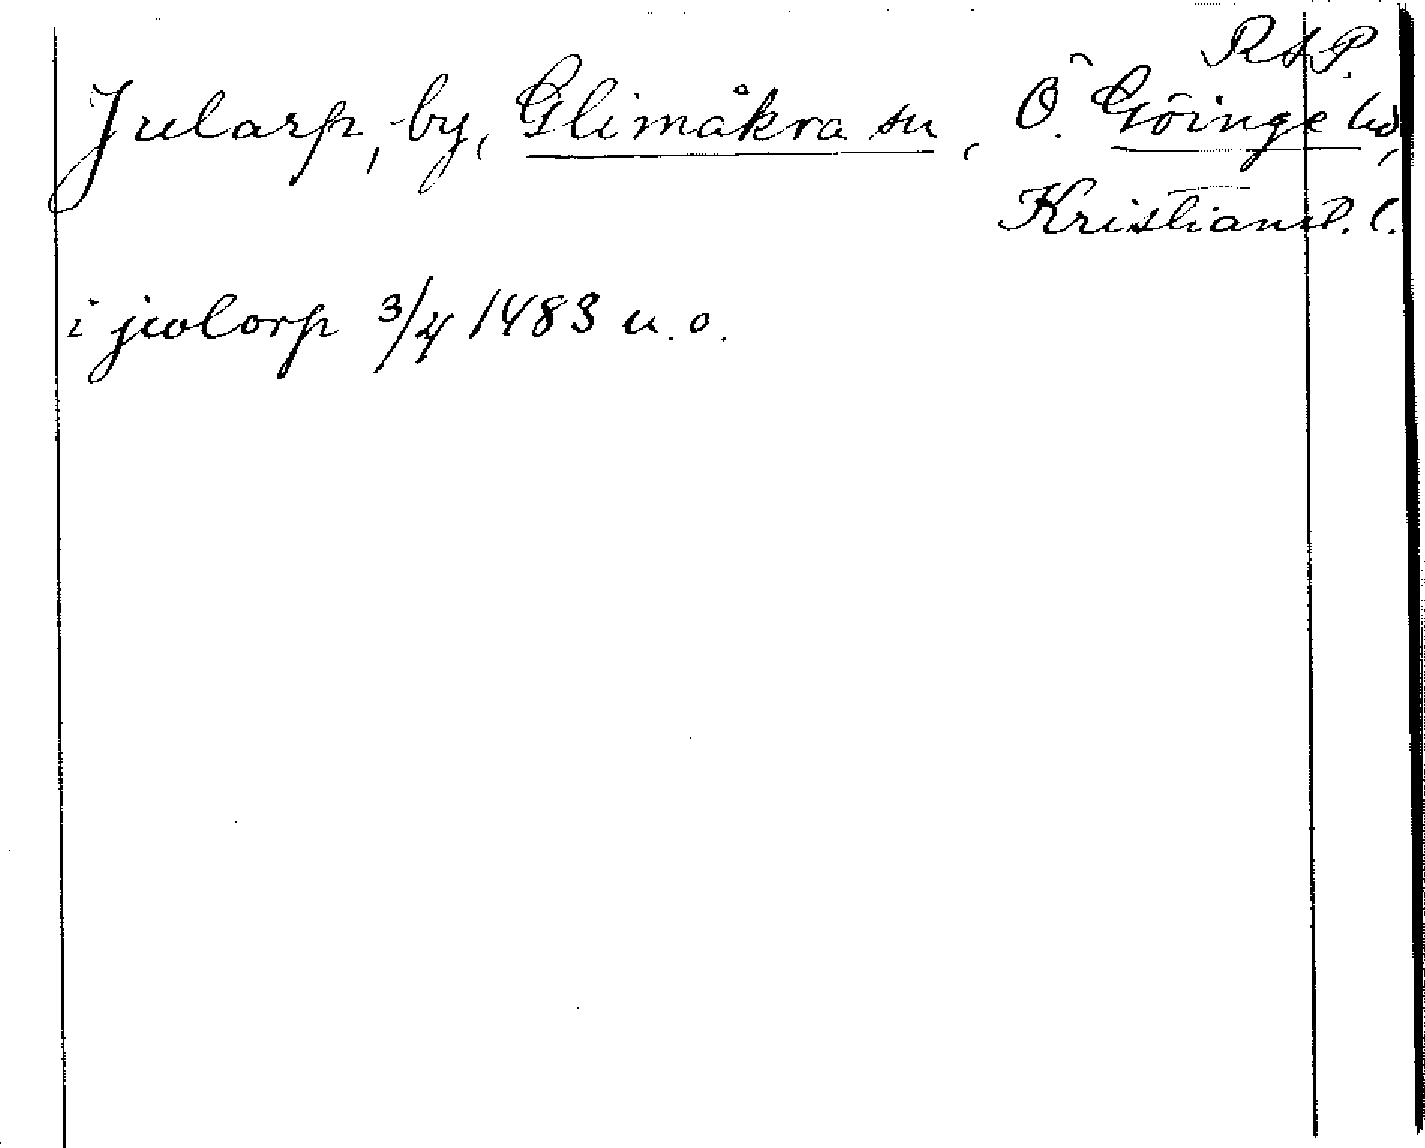 RAP.
Jularp, by, Glimåkra sn, Ö. Göinge hd,
Kristianst. l.
i jwlorp 3/4 1483 u. o.